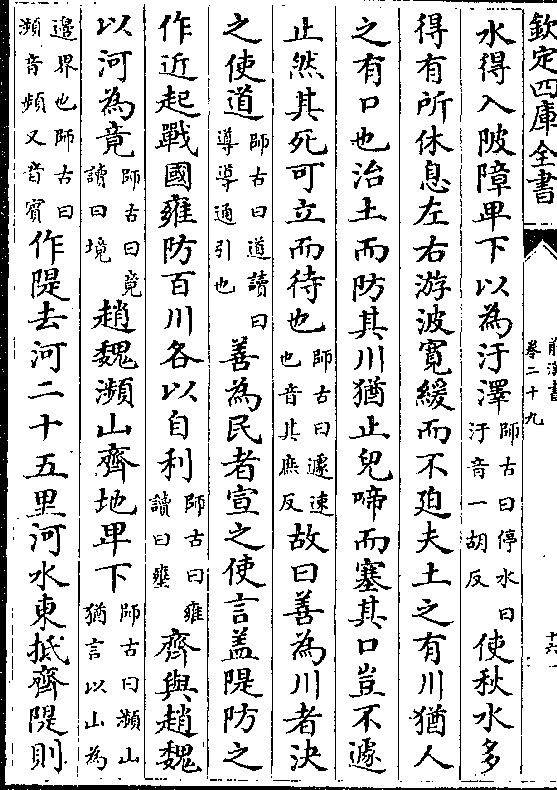 欽定四庫全書
前漢書
卷二十九
十六
水得入陂障卑下以為汙澤師古曰停水曰汙音一胡反使秋水多
得有所休息左右游波寬緩而不廹夫土之有川猶人
之有口也治土而防其川猶止兒啼而塞其口豈不遽
止然其死可立而待也師古曰遽速也音其庶反故曰善為川者決
之使道師古曰道讀曰導導通引也善為民者宣之使言盖隄防之
作近起戰國雍防百川各以自利師古曰雍讀曰壅齊與趙魏
以河為竟師古曰竟讀曰境趙魏瀕山齊地卑下師古曰瀕山猶言以山為
邊界也師古曰瀕音頻又音賓作隄去河二十五里河水東抵齊隄則